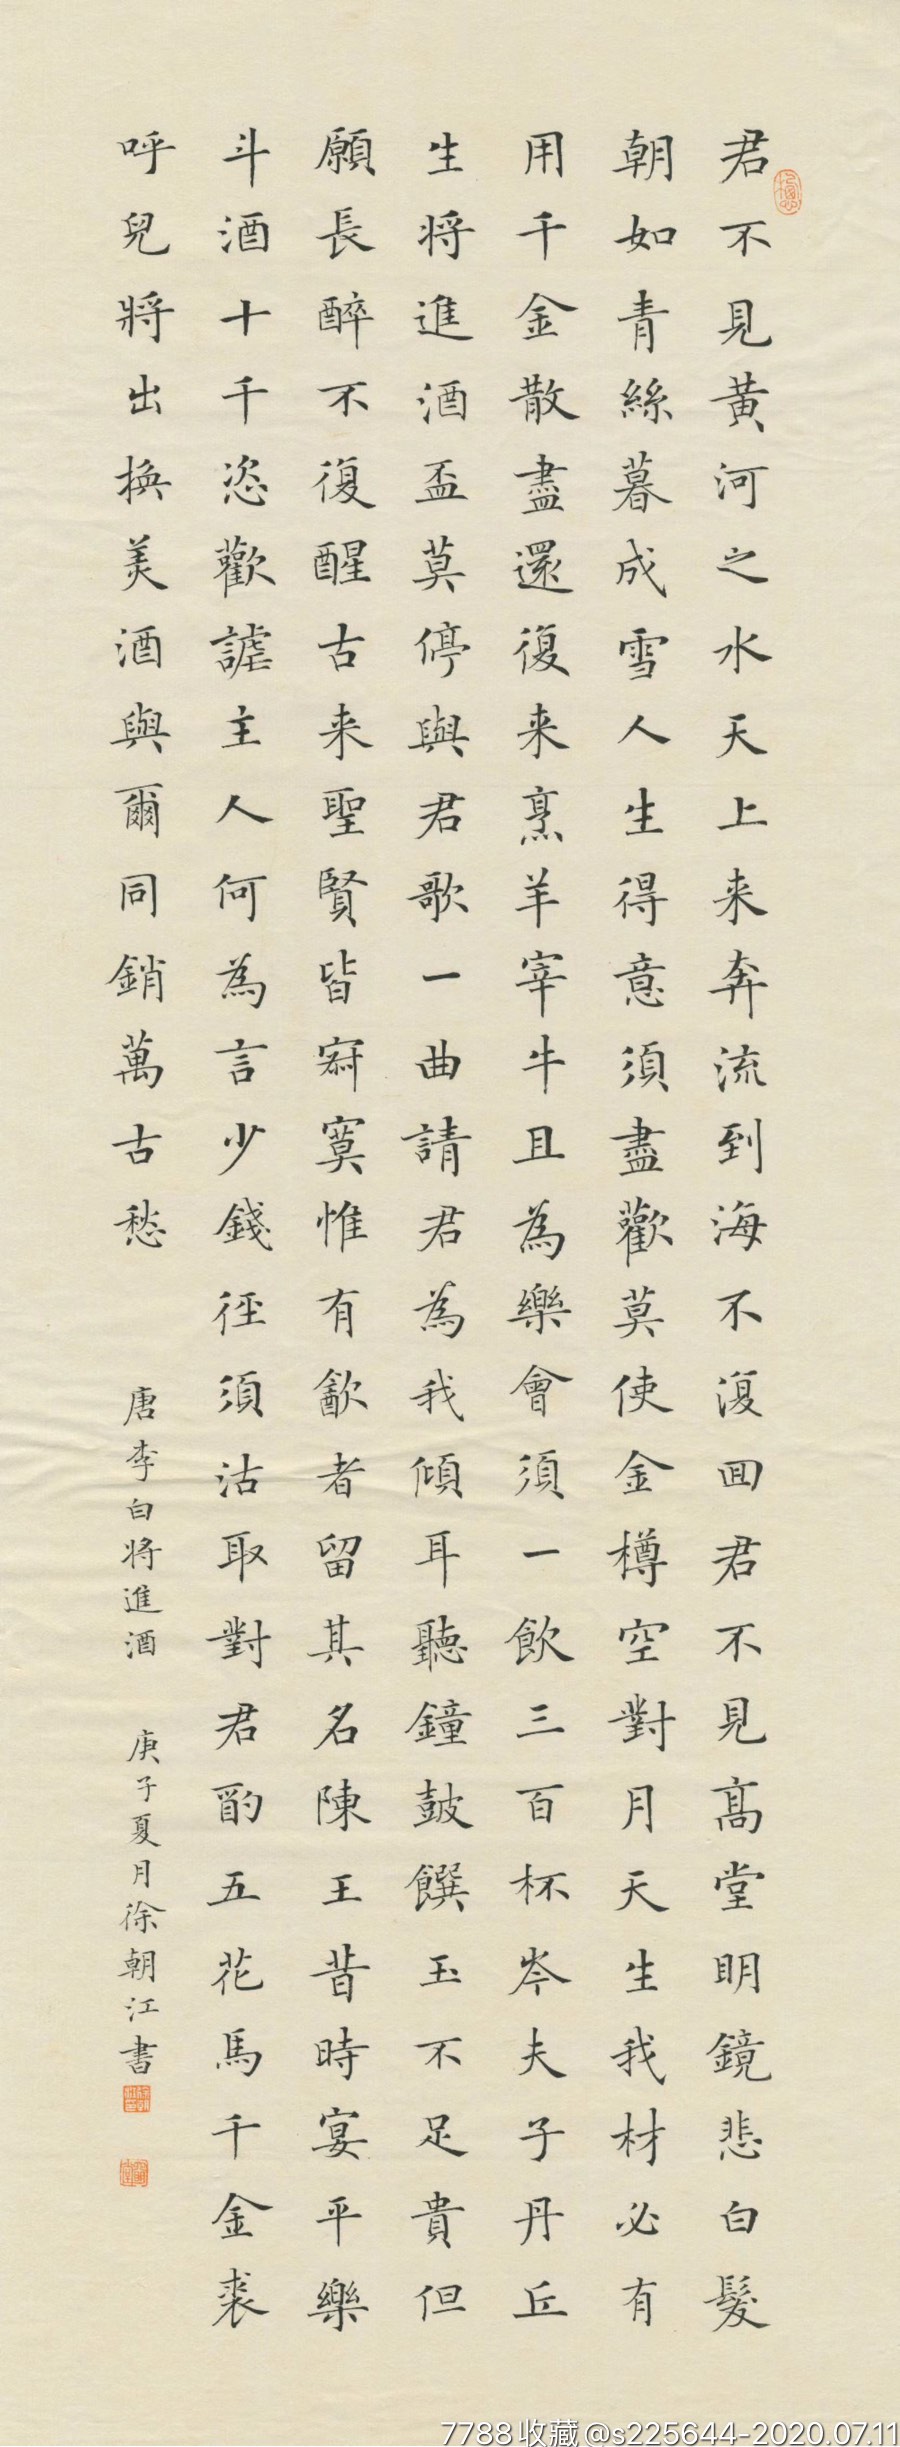 君不見黃河之水天上来奔流到海不復回君不見高堂明鏡悲白髮
朝如青絲暮成雪人生得意須盡歡莫使金樽空對月天生我材必有
用千金散盡還復来烹羊宰牛且為樂會須一飲三百杯岑夫子丹丘
生将進酒盃莫停與君歌一曲請君為我傾耳聽鐘鼓饌玉不足貴但
願長醉不復醒古来聖賢皆寂寞惟有飲者留其名陳王昔時宴平樂
斗酒十千恣歡謔主人何為言少錢徑須沽取對君酌五花馬千金裘
呼兒將出換美酒與爾同銷萬古愁
唐李白将進酒
庚子夏月徐朝江書
7788收藏@s225644-2020.07.11